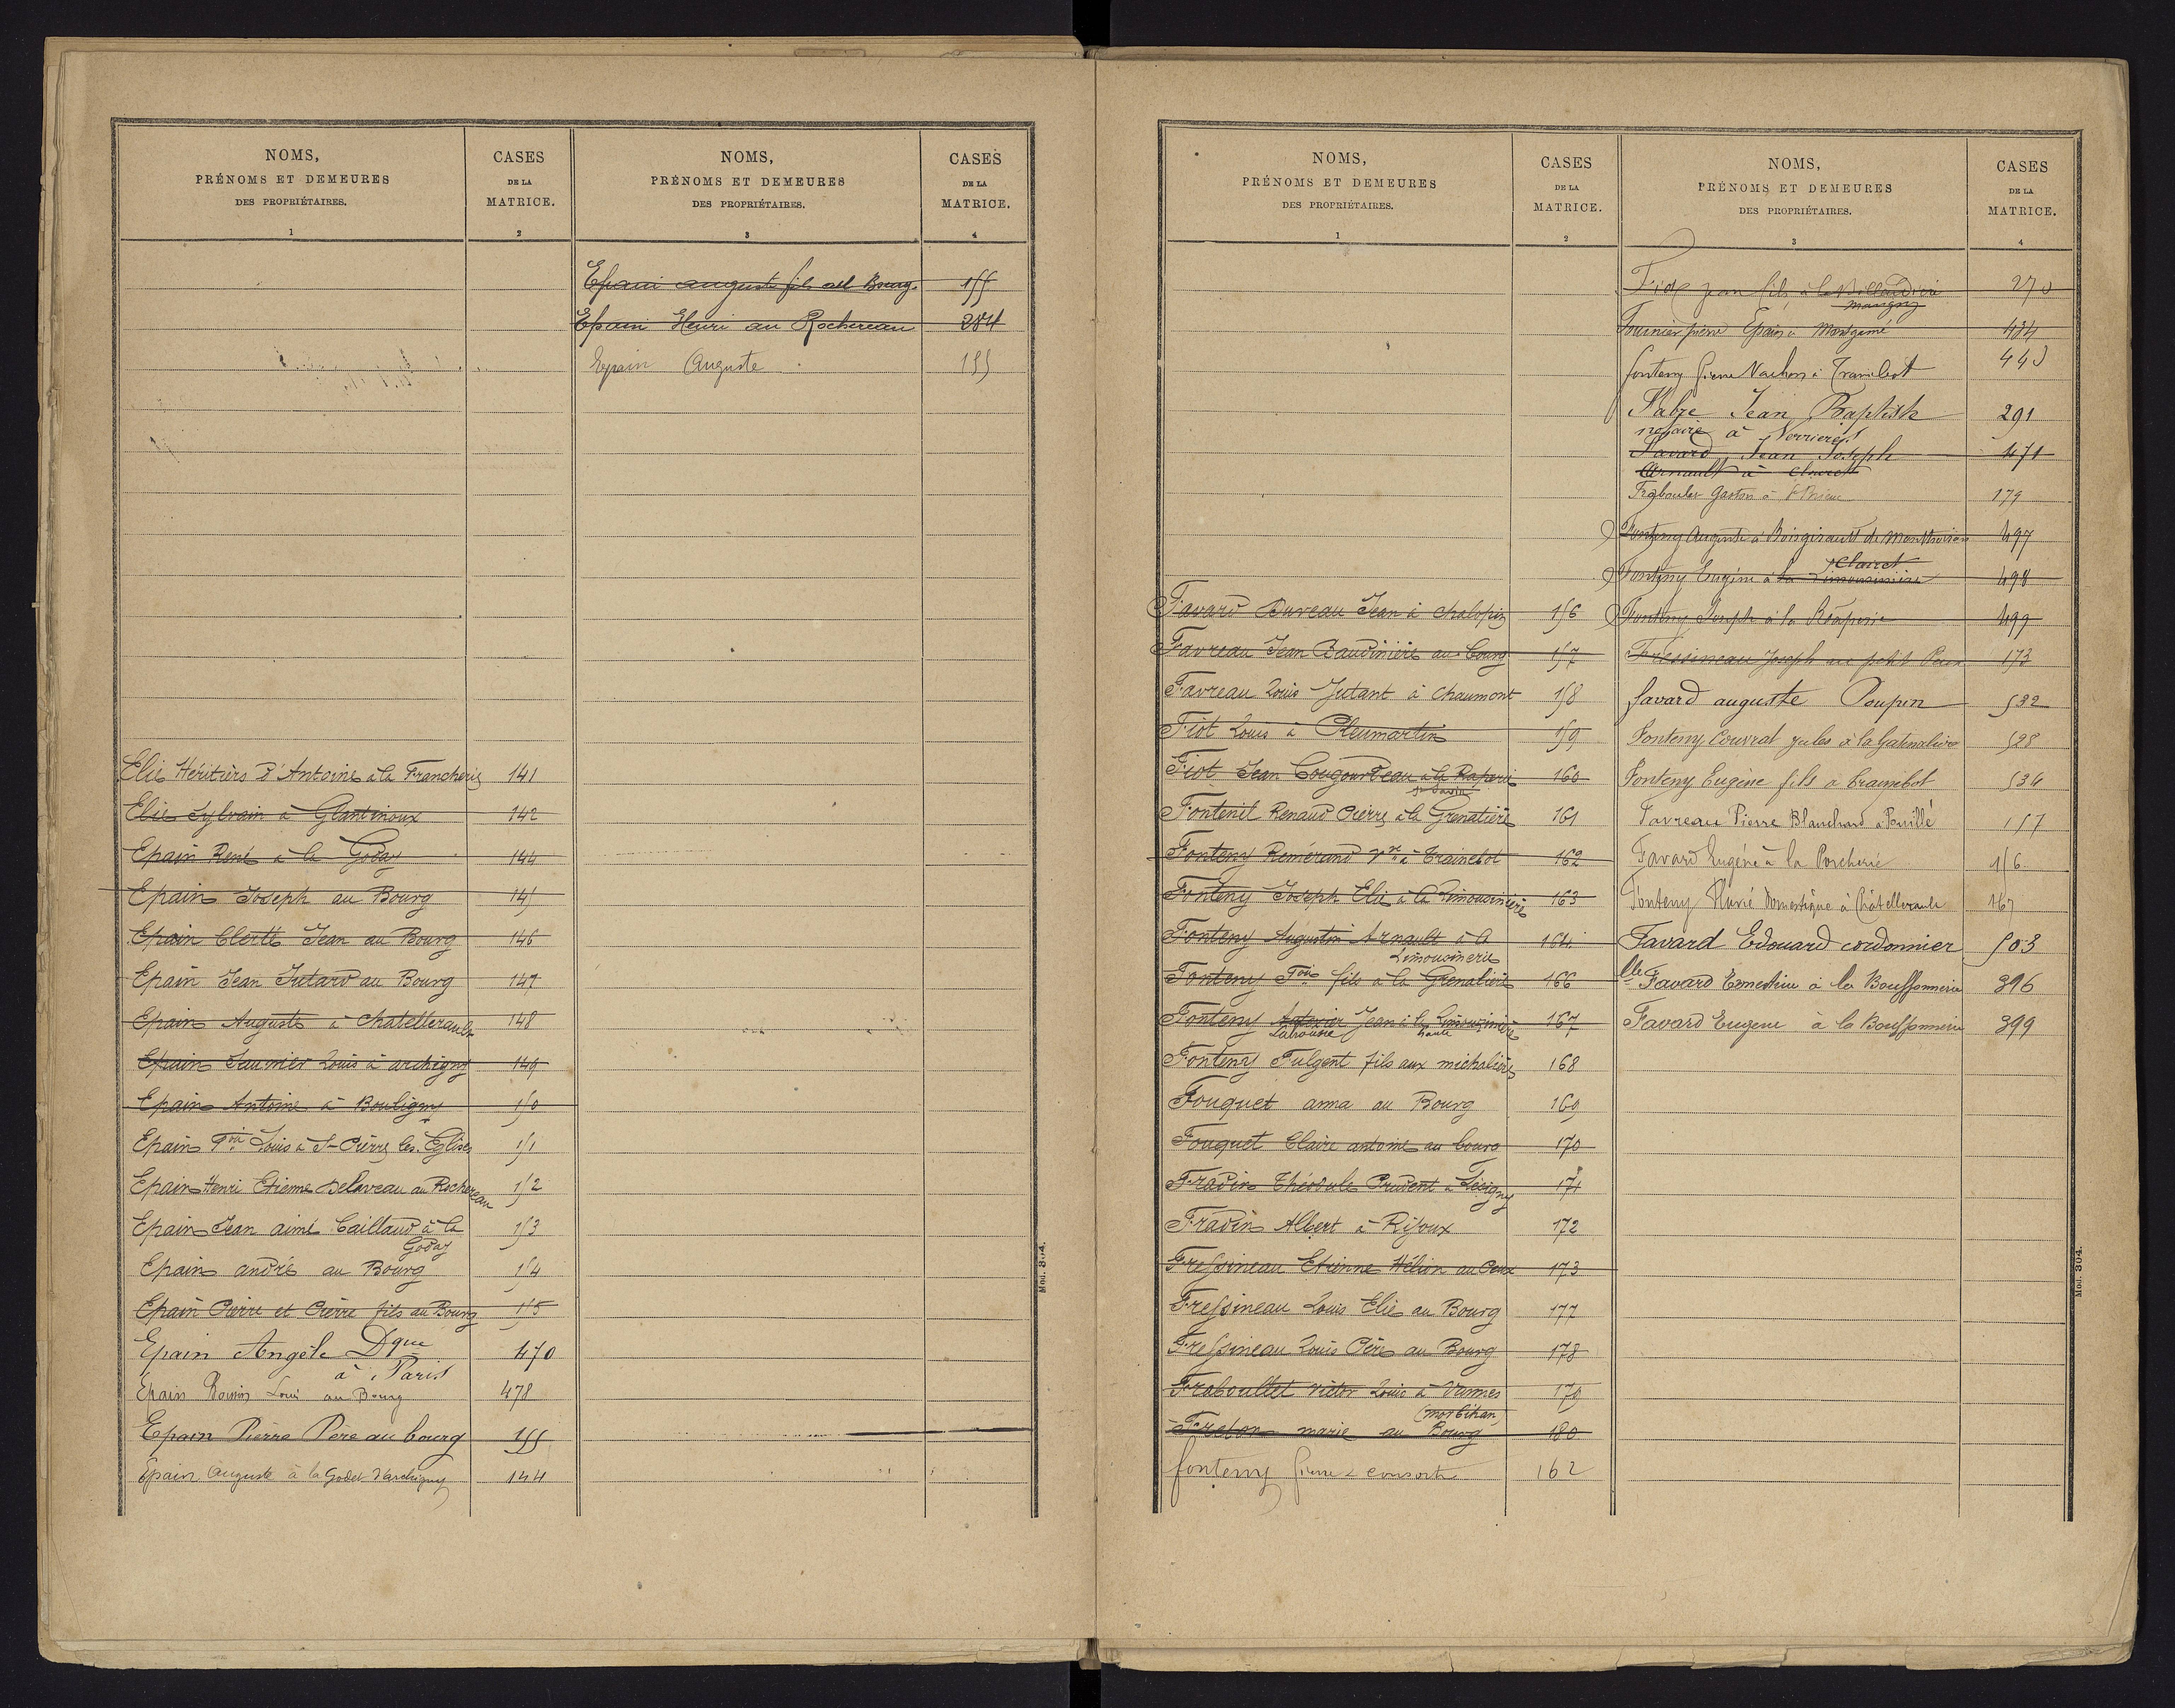 NOMS,
PRÉNOMS ET DEMEURES
DES PROPRIÉTAIRES.
1
CASES
DE LA
MATRICE.
2
Elie Héritiers d'Antoine à la Francherie 141
Elie Sylvain à Glantinoux 142
Epain René à la Goday 144
Epain Joseph au Bourg 145
Epain Clerté Jean au Bourg 146
Epain Jean Jutard au Bourg 147
Epain Auguste à Chatellerault 148
Epain Saumier Louis à archigny 149
Epain Antoine à Bouligny 150
Epain Louis à St Pierre les Eglises 151
Epain Henri Etienne Delaveau au Rochereau 152
Epain Jean aimé Caillaud à la 153
Goday
Epain andré au Bourg 154
Epain Pierre et Pierre fils au Bourg 155
Epain Angèle Dque 470
à Paris
Epain Louis au Bourg 478
Epain Pierre Père au bourg 155
Epain Auguste à la Godet d'archigny 144
NOMS,
PRÉNOMS ET DEMEURES
DES PROPRIÉTAIRES.
3
CASES
DE LA
MATRICE.
4
Epain auguste fils au Bourg 155
Epain Henri au Rochereau 284
Epain Auguste 155
Mod. 304.
NOMS,
PRÉNOMS ET DEMEURES
DES PROPRIÉTAIRES.
1
CASES
DE LA
MATRICE.
2
Favard Duveau Jean à chalopin 156
Favreau Jean Baudinière au bourg 157
Favreau Louis Jutant à chaumont 158
Fiot Louis à Pleumartin 159
Fiot Jean Cougourdeau à la Raperie 160
St Savin
Fontenit Renaud Pierre à la Grenatière 161
Fonteny Remérand Vve à Trainebot 162
Fonteny Joseph Elie à la Limousinière 163
Fonteny Augustin Arnault à la 164
Limousinerie
Fonteny fils à la Grenatière 166
Fonteny Jean à la Limousinière 167
haute
Fonteny Fulgent fils aux michalières 168
Fouquet anna au Bourg 169
Fouquet Claire antoine au bourg 170
Fradin Théodule Prudent à Lésigny 171
Fradin Albert à Rifoux 172
Fressineau Etienne Hélion au Peux 173
Fressineau Louis Elie au Bourg 177
Fressineau Louis Père au Bourg 178
Fraboullet victor Louis à Vannes 179
(morbihan)
Freton marie au Bourg 180
fonteny Pierre & consorts 162
NOMS,
PRÉNOMS ET DEMEURES
DES PROPRIÉTAIRES.
3
CASES
DE LA
MATRICE.
4
Fiot jean fils à la 270
Fournier pierre Epain à Montgamé 434
fonteny Pierre Vachon à Trainebot 443
Fabre Jean Baptiste 291
notaire à Verrières
Favard Jean Joseph 471
Arnault à Clairet
Fraboulet Gaston à St Brieuc 179
Fonteny Auguste à Boisgirault de Monthoiron 497
Clairet
Fonteny Eugène à la Limousinière 498
Fonteny Joseph à la Raperie 499
Fressineau Joseph au petit Peux 173
favard auguste Poupin 532
Fonteny Couvrat jules à la Gatinalière 528
Fonteny Eugène fils à Trainebot 534
Favreau Pierre Blanchard à Pouillé 157
Favard Eugène à la Porcherie 156
Fonteny domestique à Châtellerault 167
Favard Edouard cordonnier 503
Elle Favard Ernestine à la Bouffonnerie 396
Favard Eugène à la Bouffonnerie 399
Mod. 304.